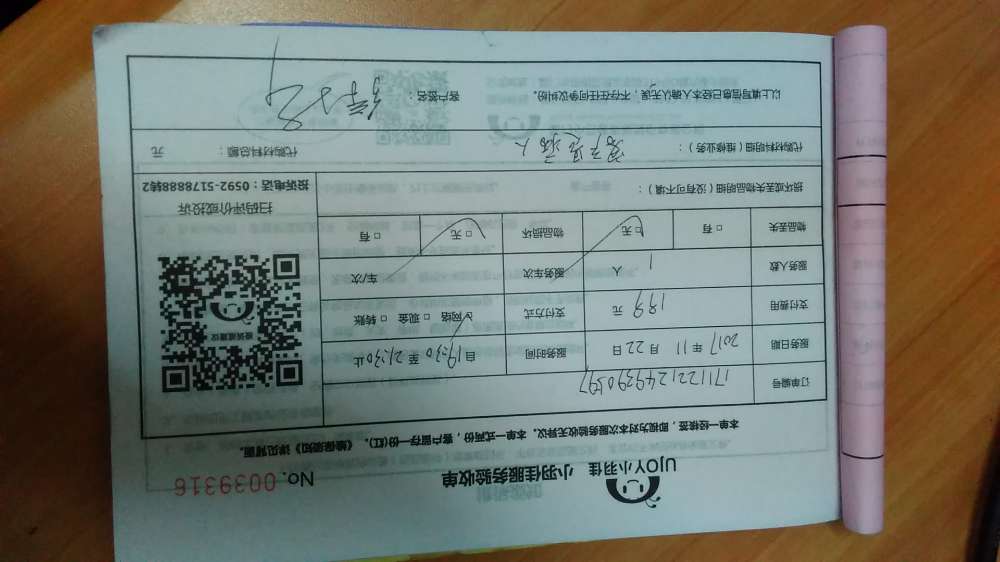 UJOY小羽佳 小羽佳服务验收单 No. 0039316
本单一经核签，即视为对本次服务验收无异议。本单一式两份，客户留存一份(红)。《维保须知》详见背面。
订单编号 1711221249390597
服务日期 2017年11月22日 服务时间 自19:30至21:30止
支付费用 199元 支付方式 ☑网络 □现金 □转账
服务人数 1人 服务车次 车/次
物品丢失 □有 ☑无 物品损坏 ☑无 □有
损坏或丢失物品明细（没有可不填）：
扫码评价或投诉
投诉电话：0592-5178888转2
代购材料明细（维修业务）： 代购材料总额： 元
以上填写信息已经本人确认无误，不存在任何争议纠纷。 客户签名：